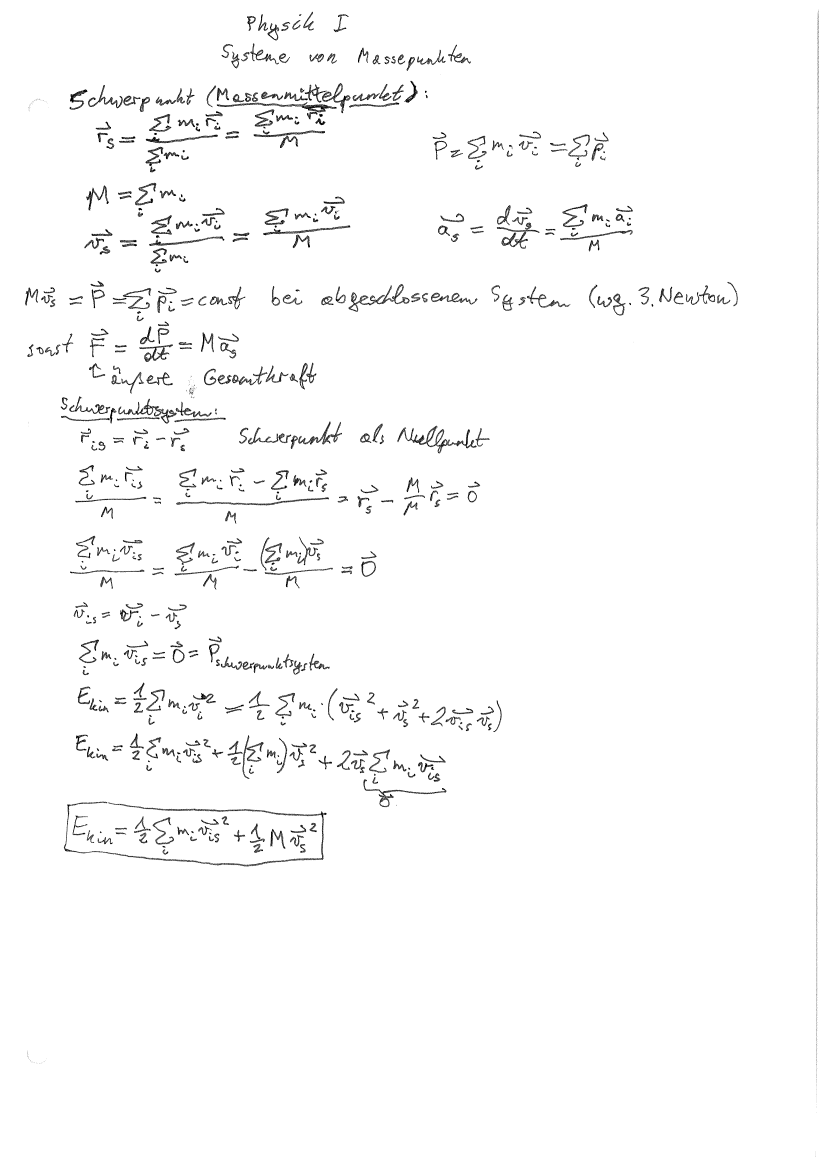 Physik I
Systeme von Massepunkten
Schwerpunkt (Massenmittelpunkt):
$\vec{r}_s = \frac{\sum_i m_i \vec{r}_i}{\sum_i m_i} = \frac{\sum_i m_i \vec{r}_i}{M}$
$\vec{P} = \sum_i m_i \vec{v}_i = \sum_i \vec{p}_i$
$M = \sum_i m_i$
$\vec{v}_s = \frac{\sum_i m_i \vec{v}_i}{\sum_i m_i} = \frac{\sum_i m_i \vec{v}_i}{M}$
$\vec{a}_s = \frac{d\vec{v}_s}{dt} = \frac{\sum_i m_i \vec{a}_i}{M}$
$M\vec{v}_s = \vec{P} = \sum_i \vec{p}_i = const$ bei abgeschlossenem System (wg. 3. Newton)
sonst $\vec{F} = \frac{d\vec{P}}{dt} = M\vec{a}_s$
↑ äußere Gesamtkraft
Schwerpunktsystem:
$\vec{r}_{is} = \vec{r}_i - \vec{r}_s$ Schwerpunkt als Nullpunkt
$\frac{\sum_i m_i \vec{r}_{is}}{M} = \frac{\sum_i m_i \vec{r}_i - \sum_i m_i \vec{r}_s}{M} = \vec{r}_s - \frac{M}{M} \vec{r}_s = \vec{0}$
$\frac{\sum_i m_i \vec{v}_{is}}{M} = \frac{\sum_i m_i \vec{v}_i}{M} - \frac{(\sum_i m_i)\vec{v}_s}{M} = \vec{0}$
$\vec{v}_{is} = \vec{v}_i - \vec{v}_s$
$\sum_i m_i \vec{v}_{is} = \vec{0} = \vec{P}_{Schwerpunktsystem}$
$E_{kin} = \frac{1}{2} \sum_i m_i \vec{v}_i^2 = \frac{1}{2} \sum_i m_i \cdot (\vec{v}_{is}^2 + \vec{v}_s^2 + 2\vec{v}_{is} \vec{v}_s)$
$E_{kin} = \frac{1}{2} \sum_i m_i \vec{v}_{is}^2 + \frac{1}{2} (\sum_i m_i) \vec{v}_s^2 + 2\vec{v}_s \underbrace{\sum_i m_i \vec{v}_{is}}_{\vec{0}}$
$E_{kin} = \frac{1}{2} \sum_i m_i \vec{v}_{is}^2 + \frac{1}{2} M \vec{v}_s^2$